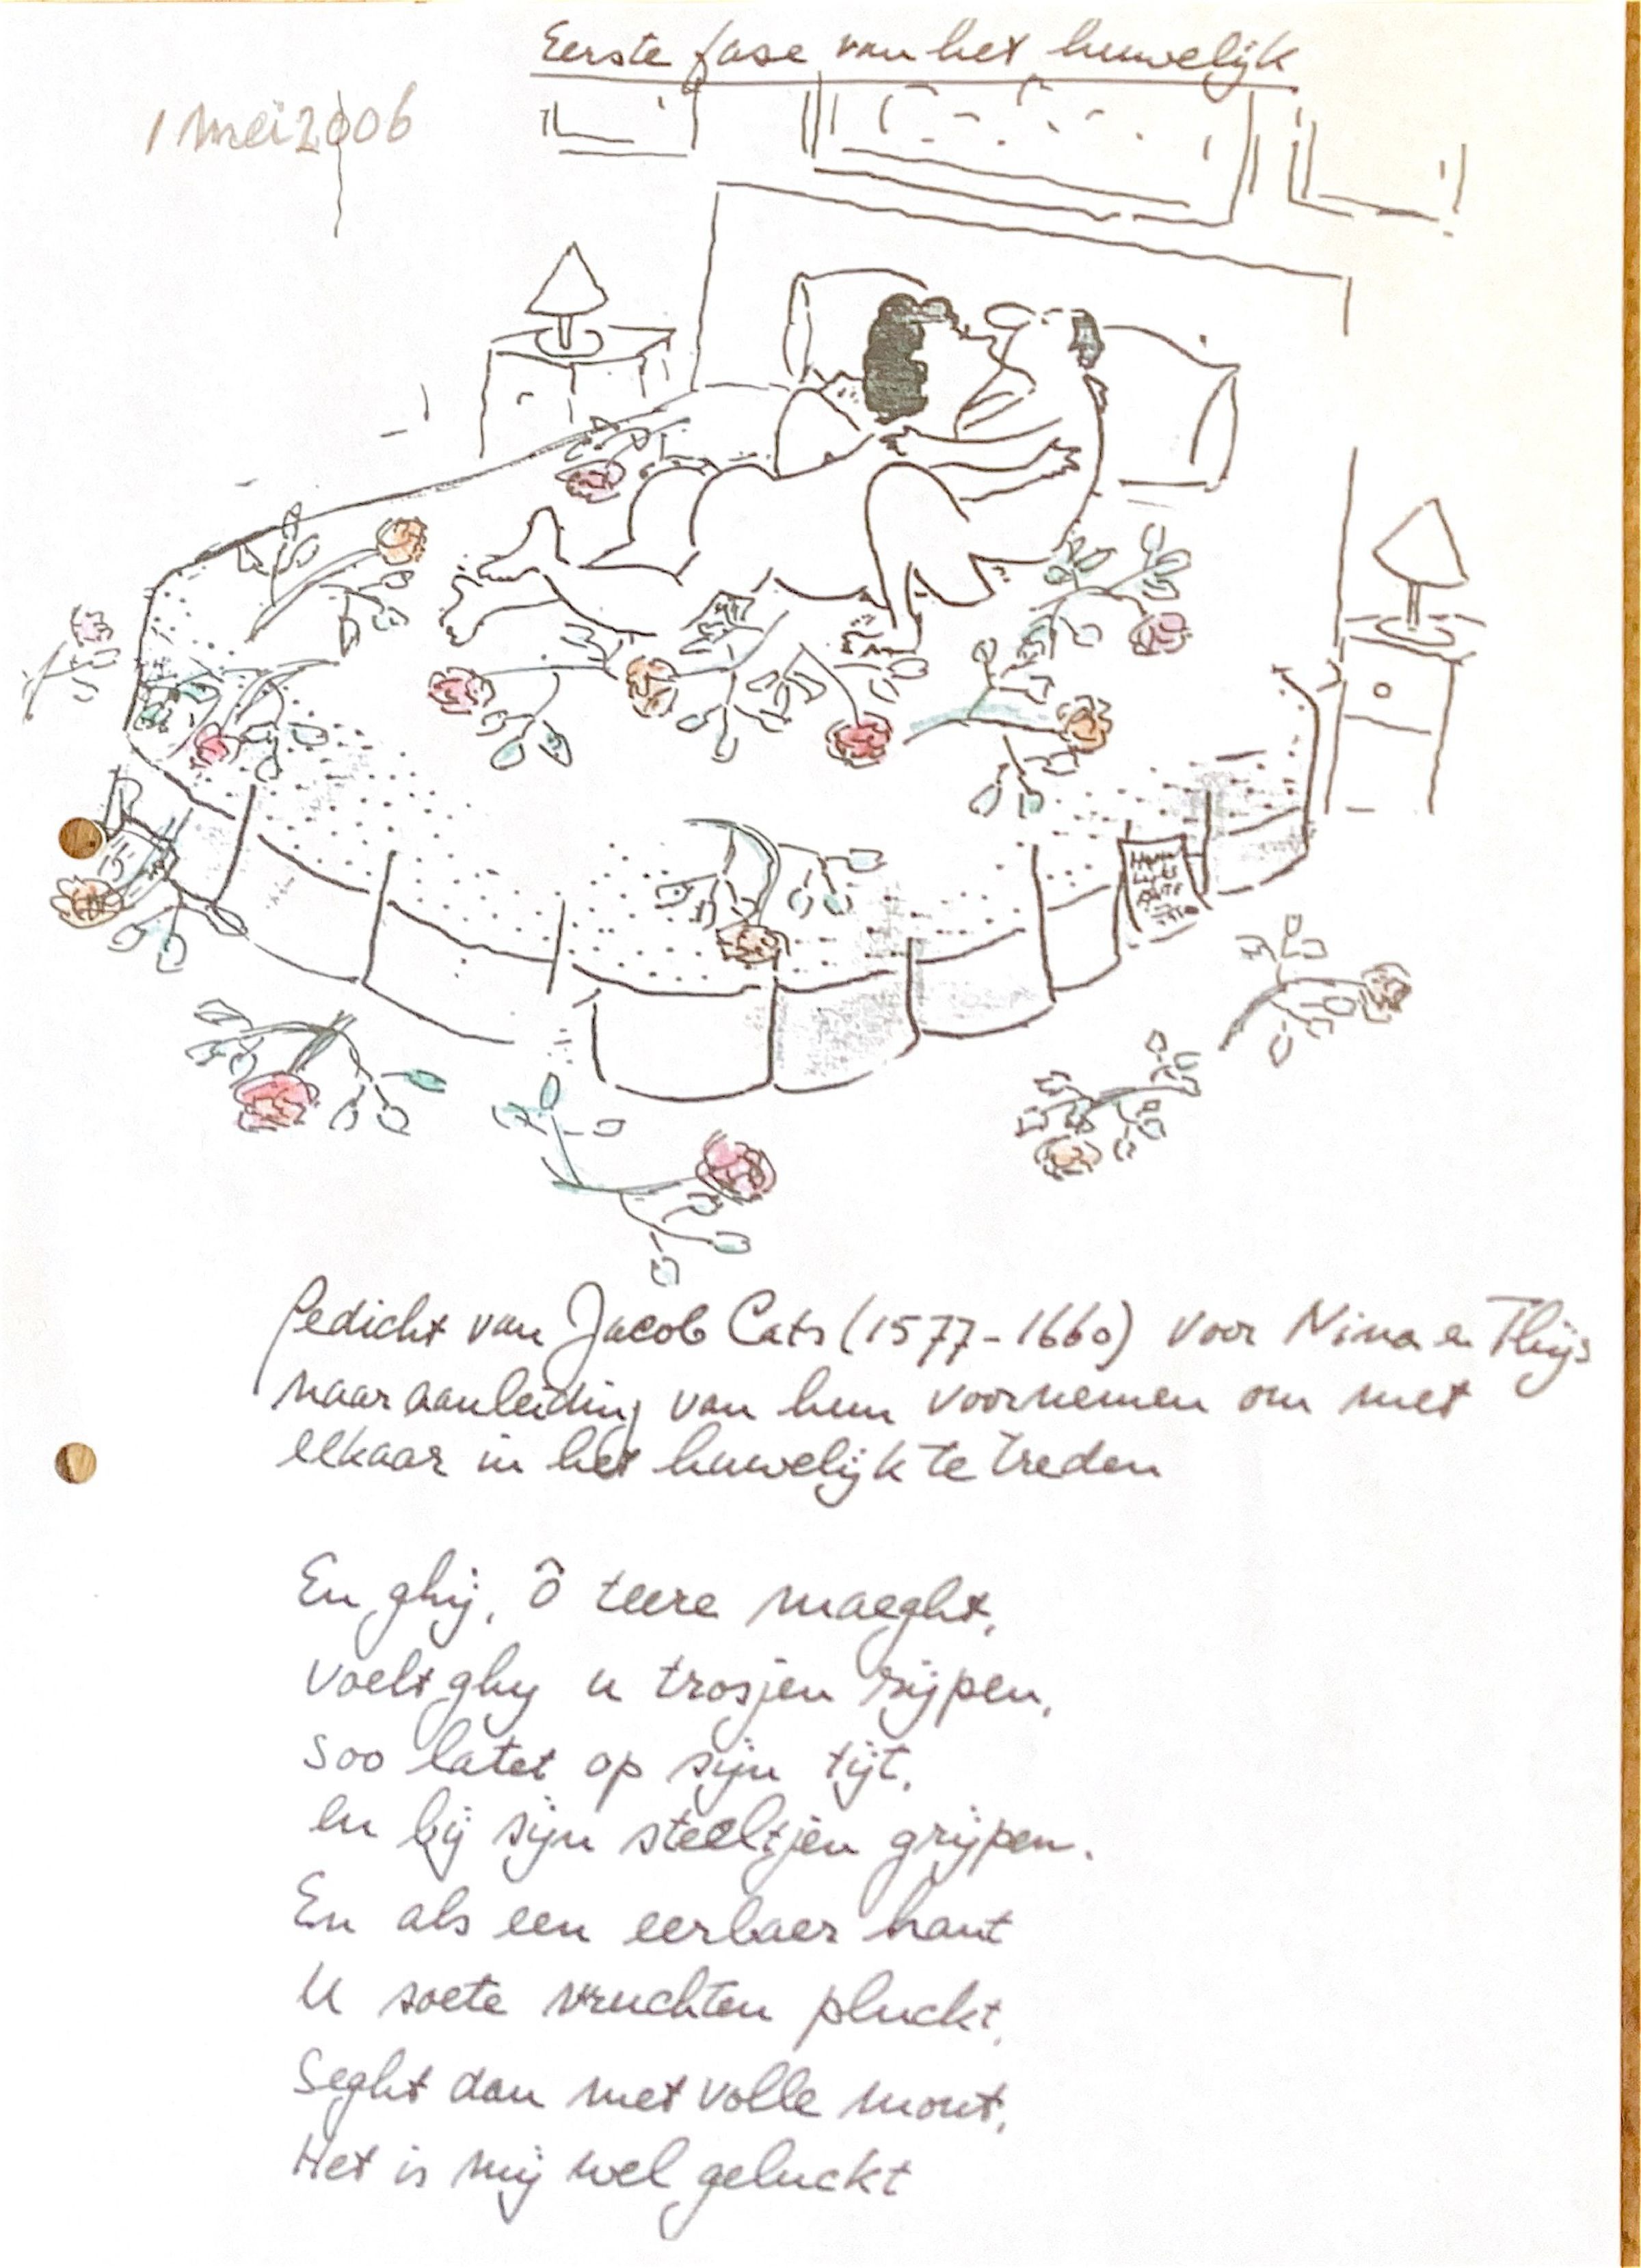 Eerste fase van het huwelijk
1 mei 2006
Gedicht van Jacob Cats (1577-1660) voor Nina en Thijs
naar aanleiding van hun voornemen om met
elkaar in het huwelijk te treden
En ghij, ô teere maeght,
voelt ghy u trosjen rijpen,
soo latet op sijn tijt,
en bij sijn steeltjen grijpen.
En als een eerbaer hant
U soete vruchten pluckt,
Seght dan met volle mont,
Het is mij wel geluckt